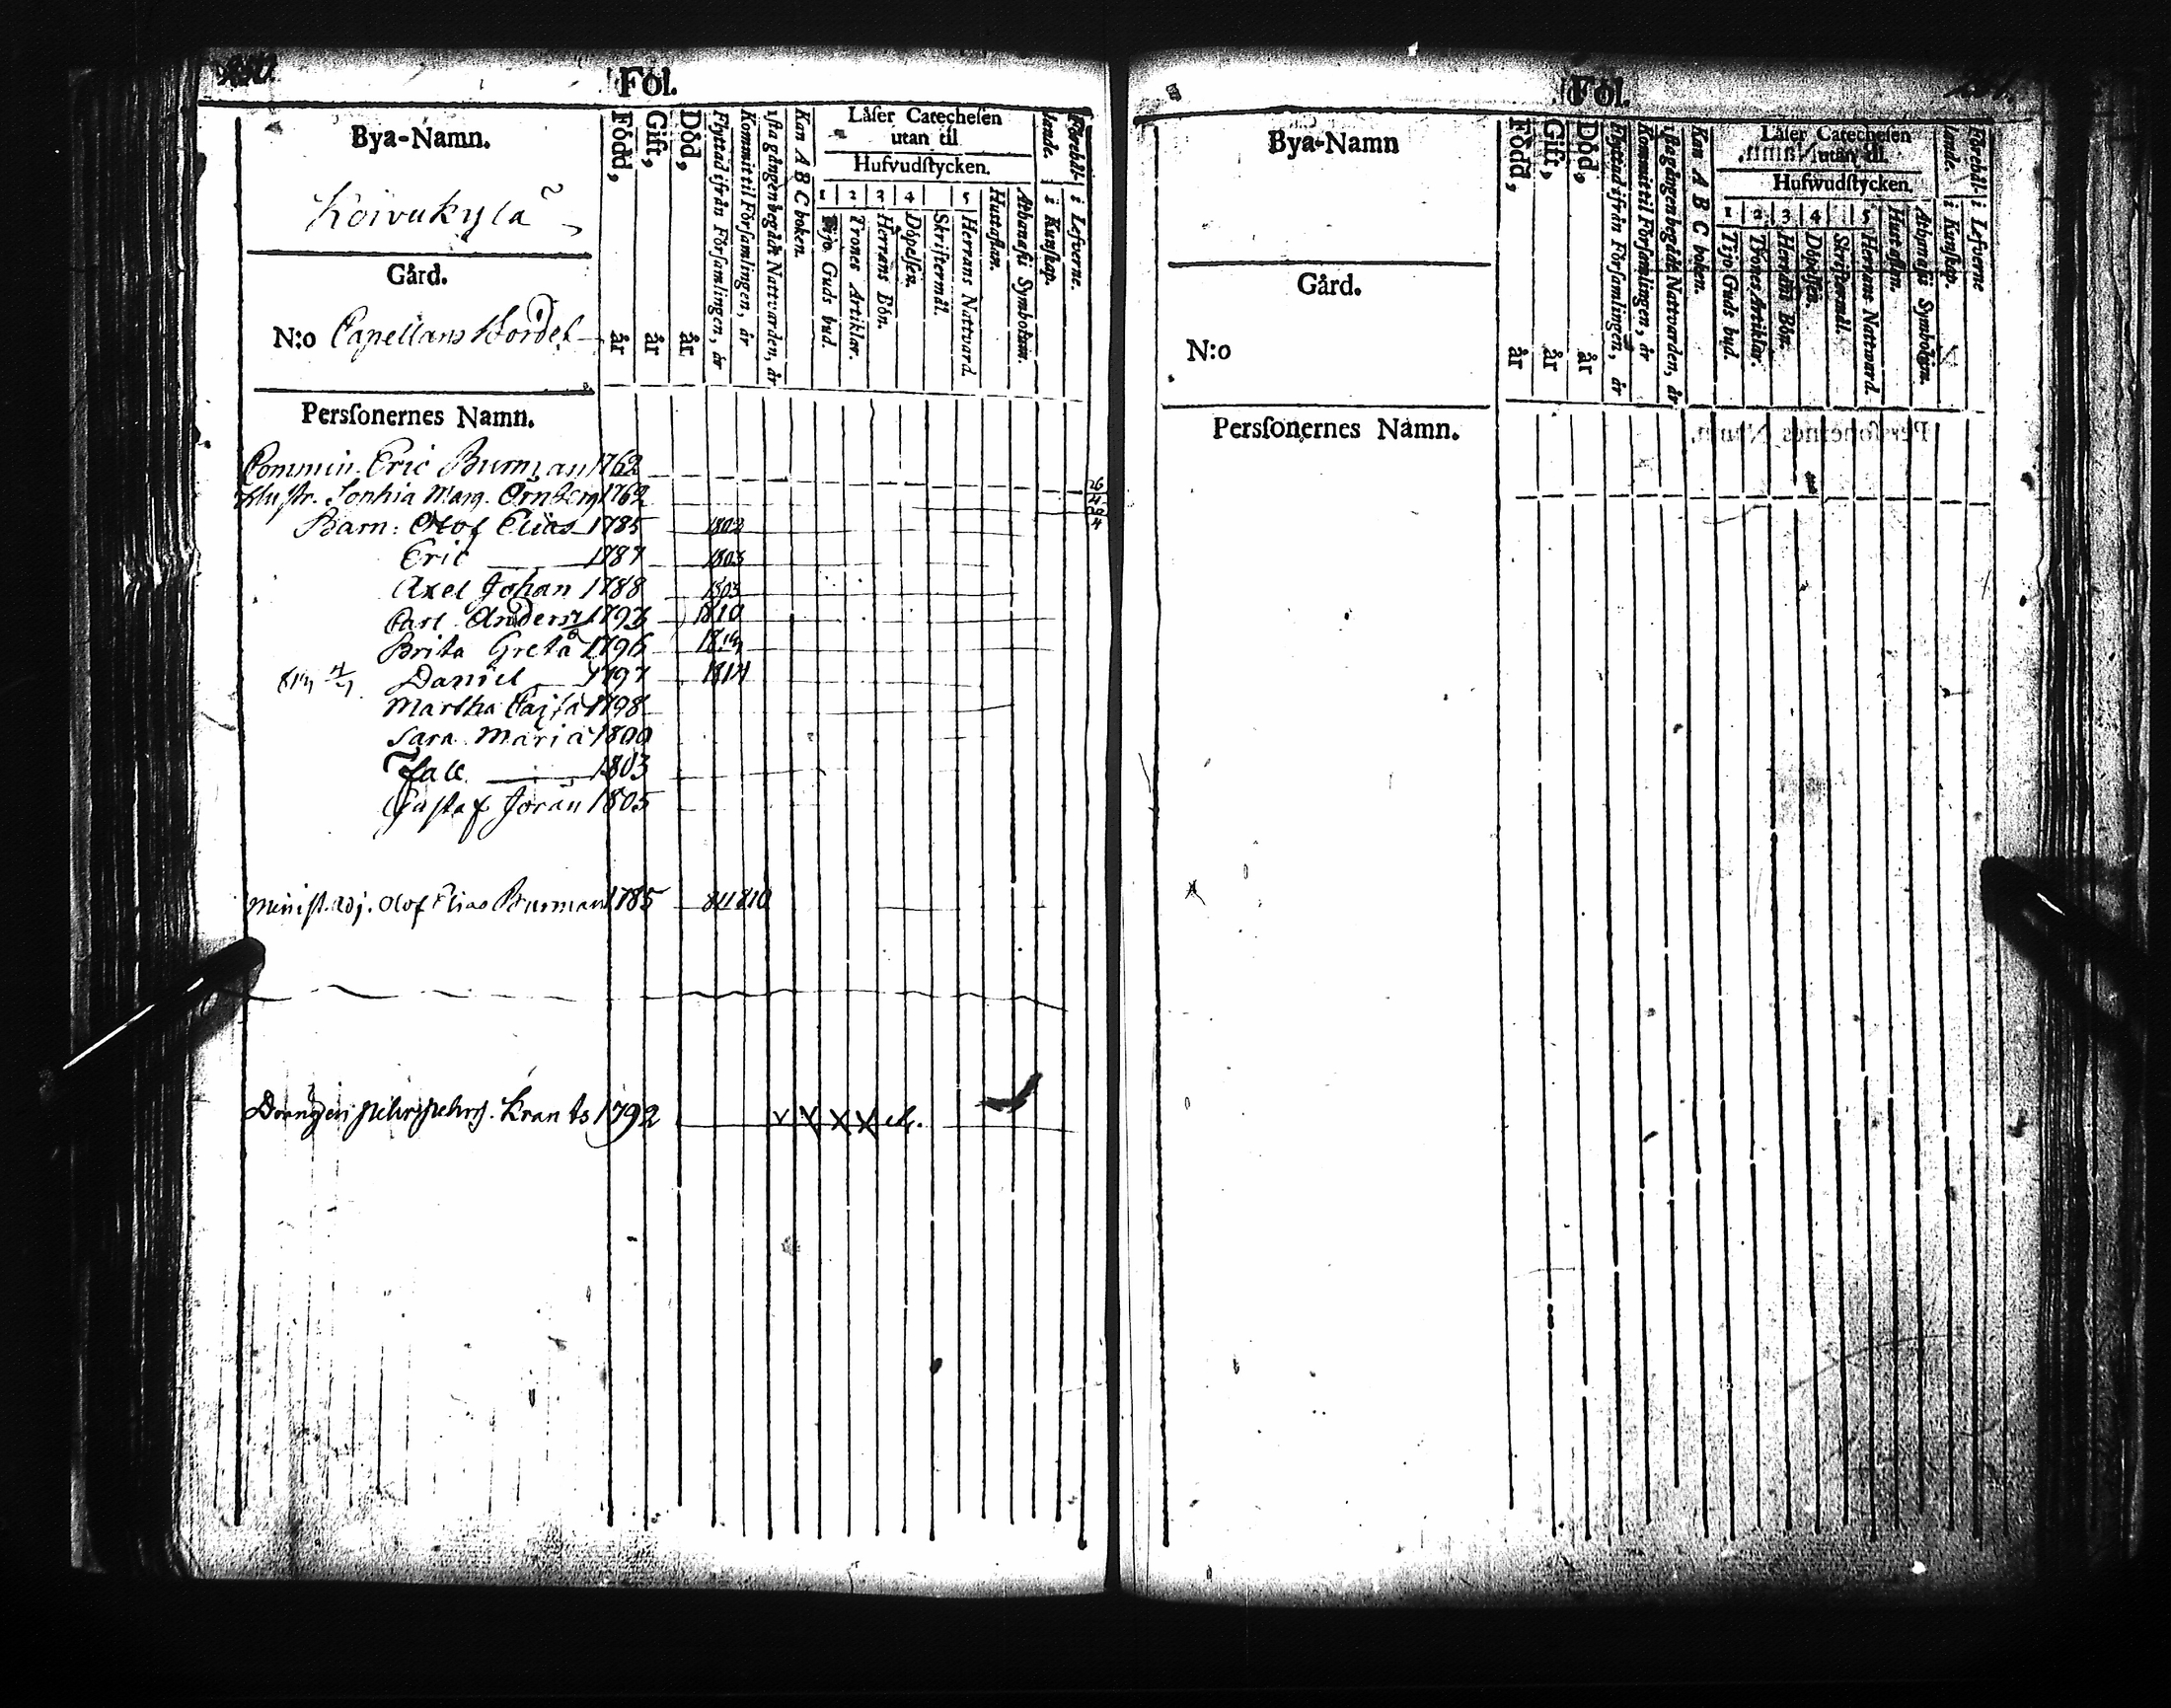 Fol.
Bya-Namn.
Koivukylä
Gård.
N:o Capellans Bordel
Född, år
Gift, år
Död, år
Flyttad ifrån Församlingen, år
Kommit til Församlingen, år
1sta gången begådt Nattvarden, år
Kan A B C boken.
Läser Catechesen
utan til
Hufvudstycken.
1 2 3 4 5
Tijo Guds bud.
Trones Artiklar.
Herrans Bön.
Döpelsen.
Skriftermål.
Herrans Nattvard.
Hustaflan.
Athanasii Symbolum.
Förehål-
lande.
i Kunskap.
i Lefverne.
Personernes Namn.
Commin. Eric Burman 1762
Hustr. Sophia Marg. Örnberg 1762
Barn: Olof Elias 1785 1802
Eric 1787 1803
Axel Johan 1788 1803
Carl Anders 1793 1810
Brita Greta 1796
Daniel 1797 1814
Martha Cajsa 1798
Sara Maria 1800
1803
Gustaf Joran 1805
Minist. adj. Olof Elias Burman 1785 811 810
Krants 1792 x x x x
Fol.
Bya-Namn
Gård.
N:o
Född, år
Gift, år
Död, år
Flyttad ifrån Församlingen, år
Kommit til Församlingen, år
1sta gången begådt Nattvarden, år
Kan A B C boken.
Läser Catechesen
utan til.
Hufwudstycken.
1 2 3 4 5
Tijo Guds bud.
Trones Artiklar.
Herrans Bön.
Döpelsen.
Skriftermål.
Herrans Nattward.
Hustaflan.
Athanasii Symbolum.
Förehål-
lande.
i Kunskap.
i Lefverne
Personernes Namn.